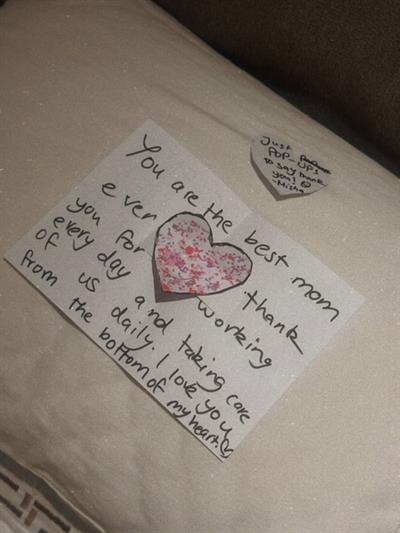 You are the best mom
ever thank
you for working
every day and taking care
of us daily. I love you
from the bottom of my heart. ♡
Just
POP-UPS
to say thank
you! ☺
-Misha